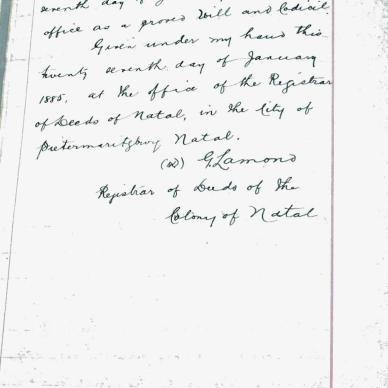 seventh day of
office as a proved Will and Codicil.
Given under my hand this
twenty seventh day of January
1885, at the office of the Registrar
of Deeds of Natal, in the City of
Pietermaritzburg Natal.
(sd) G Lamond
Registrar of Deeds of the
Colony of Natal